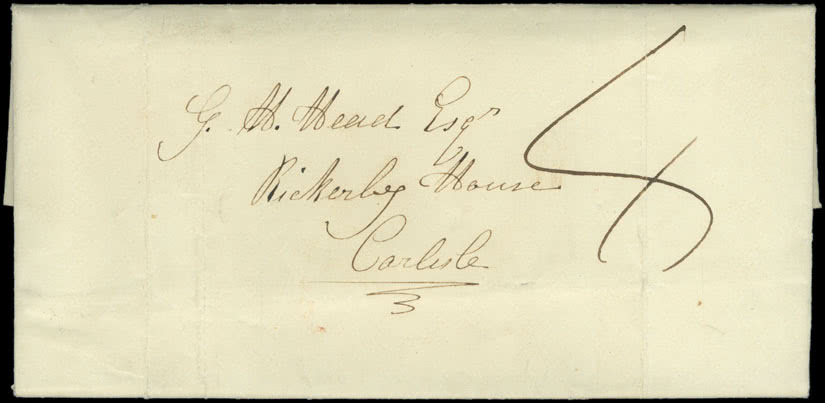 G. H. Head Esqr
4
Rickerby House
Carlisle